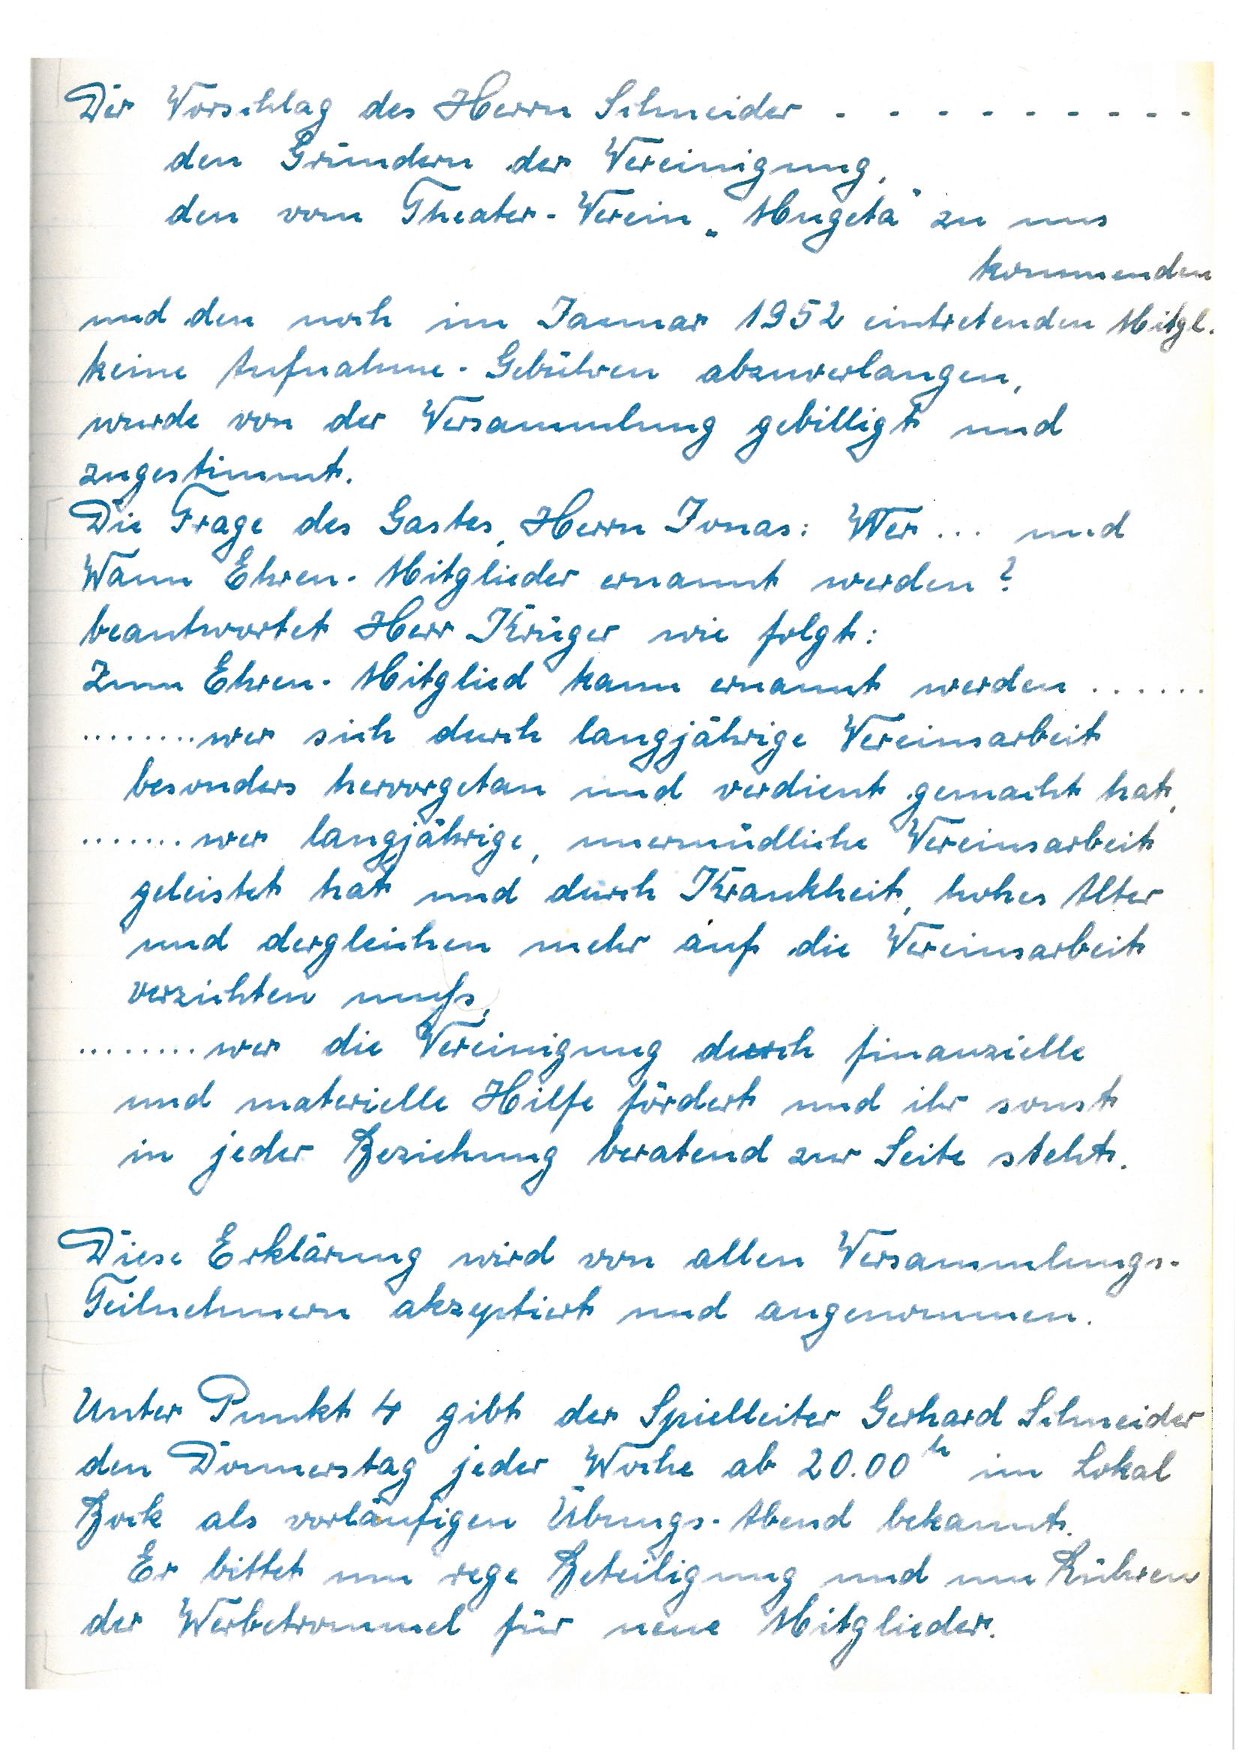 Der Vorschlag des Herrn Schneider - - - - - - - - - -
den Gründern der Vereinigung,
den vom Theater-Verein „Mugeta" zu uns
kommenden
und den noch im Januar 1952 eintretenden Mitgl.
keine Aufnahme-Gebühren abzuverlangen,
wurde von der Versammlung gebilligt und
zugestimmt.
Die Frage des Gastes, Herrn Jonas: Wer ... und
Wann Ehren-Mitglieder ernannt werden?
beantwortet Herr Krüger wie folgt:
Zum Ehren-Mitglied kann ernannt werden ......
........wer sich durch langjährige Vereinsarbeit
besonders hervorgetan und verdient gemacht hat,
.......wer langjährige, unermüdliche Vereinsarbeit
geleistet hat und durch Krankheit, hohes Alter
und dergleichen mehr auf die Vereinsarbeit
verzichten muß,
........wer die Vereinigung durch finanzielle
und materielle Hilfe fördert und ihr sonst
in jeder Beziehung beratend zur Seite steht.
Diese Erklärung wird von allen Versammlungs-
Teilnehmern akzeptiert und angenommen.
Unter Punkt 4 gibt der Spielleiter Gerhard Schneider
den Donnerstag jeder Woche ab 20.00 h im Lokal
Bock als vorläufigen Übungs-Abend bekannt.
Er bittet um rege Beteiligung und um Rühren
der Werbetrommel für neue Mitglieder.